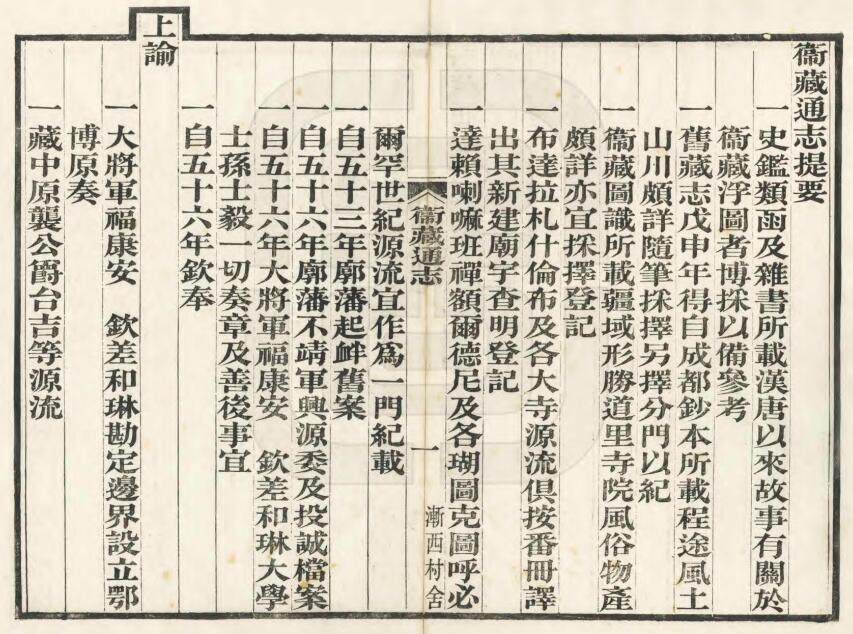 衞藏通志提要
一史鑑類函及雜書所載漢唐以來故事有關於
衞藏浮圖者博採以備參考
一舊藏志戊申年得自成都鈔本所載程途風土
山川頗詳隨筆採擇另擇分門以紀
一衞藏圖識所載疆域形勝道里寺院風俗物產
頗詳亦宜採擇登記
一布達拉札什倫布及各大寺源流俱按番冊譯
出其新建廟宇查明登記
一達賴喇嘛班禪額爾德尼及各瑚圖克圖呼必
衞藏通志
一
漸西村舍
爾罕世紀源流宜作爲一門紀載
一自五十三年廓藩起衅舊案
一自五十六年廓藩不靖軍興源委及投誠檔案
一自五十六年大將軍福康安 欽差和琳大學
士孫士毅一切奏章及善後事宜
一自五十六年欽奉
上諭
一大將軍福康安 欽差和琳勘定邊界設立鄂
博原奏
一藏中原襲公爵台吉等源流